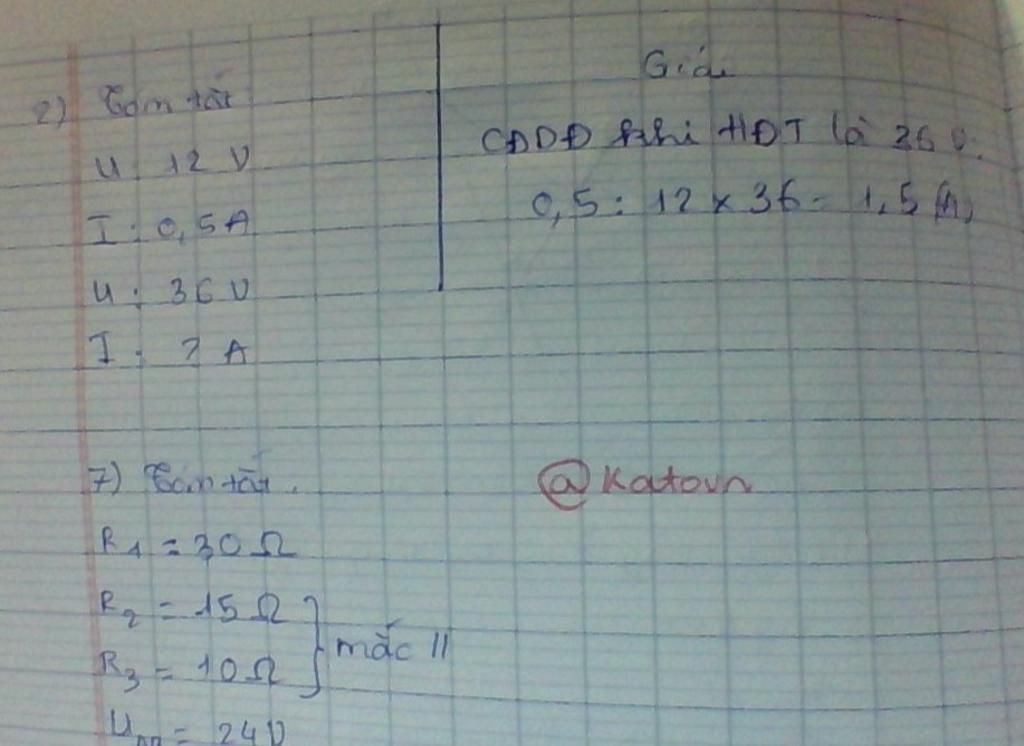 2) Tóm tắt
U: 12 V
I: 0,5A
U: 36 V
I: ? A
Giải
CĐDĐ khi HĐT là 36 V.
0,5 : 12 x 36 = 1,5 (A)
7) Tóm tắt.
@Katovn
R1 = 30 Ω
R2 = 15 Ω
R3 = 10 Ω
mắc //
= 24 V